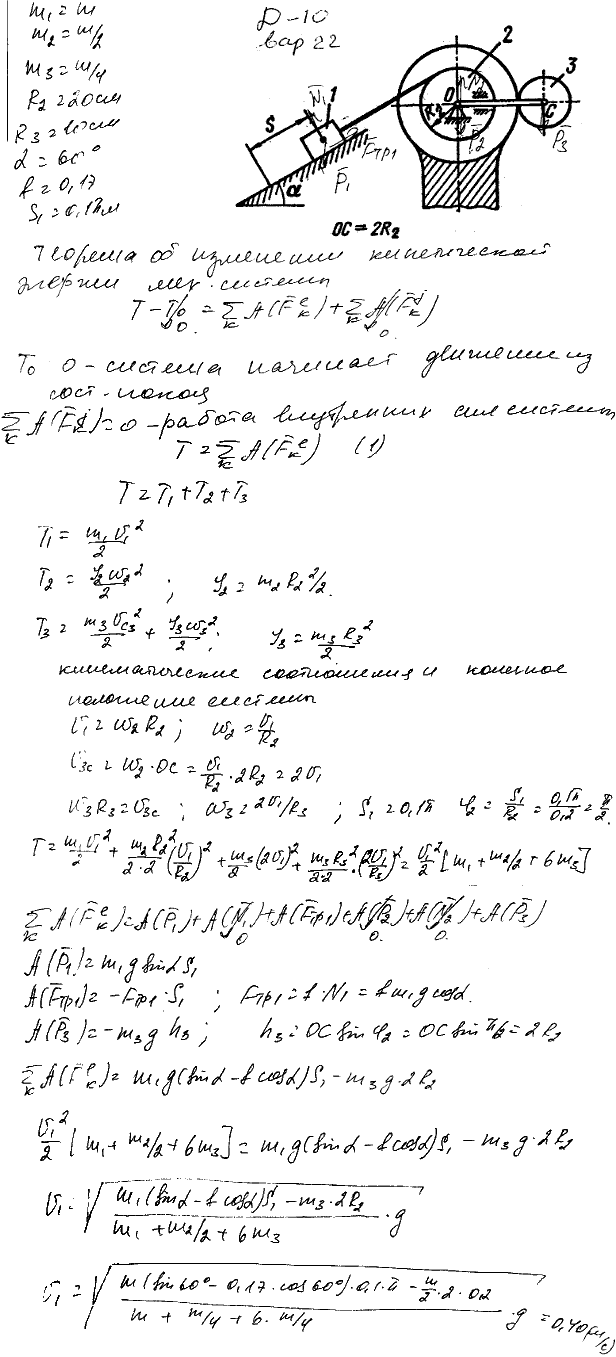 m₁ = m
m₂ = m/2
m₃ = m/4
R₂ = 20 см
R₃ = 10 см
α = 60°
f = 0,17
S₁ = 0,1π м
Д-10
вар 22
S
N̄₁
1
F̄тр1
P̄₁
α
2
3
O
R₂
P̄₂
C
P̄₃
OC = 2R₂
Теорема об изменении кинетической
энергии мех. системы
T - T₀ = Σ A(F̄ₖᵉ) + Σ A(F̄ₖʲ)
T₀ 0 - система начинает движение из
сост. покоя
Σ A(F̄ₖʲ) = 0 - работа внутренних сил системы
T = Σ A(F̄ₖᵉ) (1)
T = T₁ + T₂ + T₃
T₁ = m₁υ₁²/2
T₂ = J₂ω₂²/2 ; J₂ = m₂R₂²/2.
T₃ = m₃υc₃²/2 + J₃ω₃²/2 ; J₃ = m₃R₃²/2
кинематические соотношения и конечное
положение системы
υ₁ = ω₂R₂ ; ω₂ = υ₁/R₂
υ₃c = ω₂·OC = υ₁/R₂ · 2R₂ = 2υ₁
ω₃R₃ = υ₃c ; ω₃ = 2υ₁/R₃ ; S₁ = 0,1π φ₂ = S₁/R₂ = 0,1π/0,2 = π/2.
T = m₁υ₁²/2 + m₂R₂²/2·2 (υ₁/R₂)² + m₃/2 (2υ₁)² + m₃R₃²/2·2 · (2υ₁/R₃)² = υ₁²/2 [m₁ + m₂/2 + 6m₃]
Σ A(F̄ₖᵉ) = A(P̄₁) + A(N̄₁) + A(F̄тр1) + A(P̄₂) + A(N̄₂) + A(P̄₃)
A(P̄₁) = m₁g sinα S₁
A(F̄тр1) = -Fтр1·S₁ ; Fтр1 = f·N₁ = f m₁g cosα.
A(P̄₃) = -m₃g h₃ ; h₃ = OC sin φ₂ = OC sin π/2 = 2R₂
Σ A(F̄ₖᵉ) = m₁g(sinα - f cosα)S₁ - m₃g·2R₂
υ₁²/2 [m₁ + m₂/2 + 6m₃] = m₁g(sinα - f cosα)S₁ - m₃g·2R₂
υ₁ = √(m₁(sinα - f cosα)S₁ - m₃·2R₂ / m₁ + m₂/2 + 6m₃ · g)
υ₁ = √(m(sin60° - 0,17·cos60°)·0,1·π - m/2·2·0,2 / m + m/4 + 6·m/4 · g) = 0,40 (м/с)